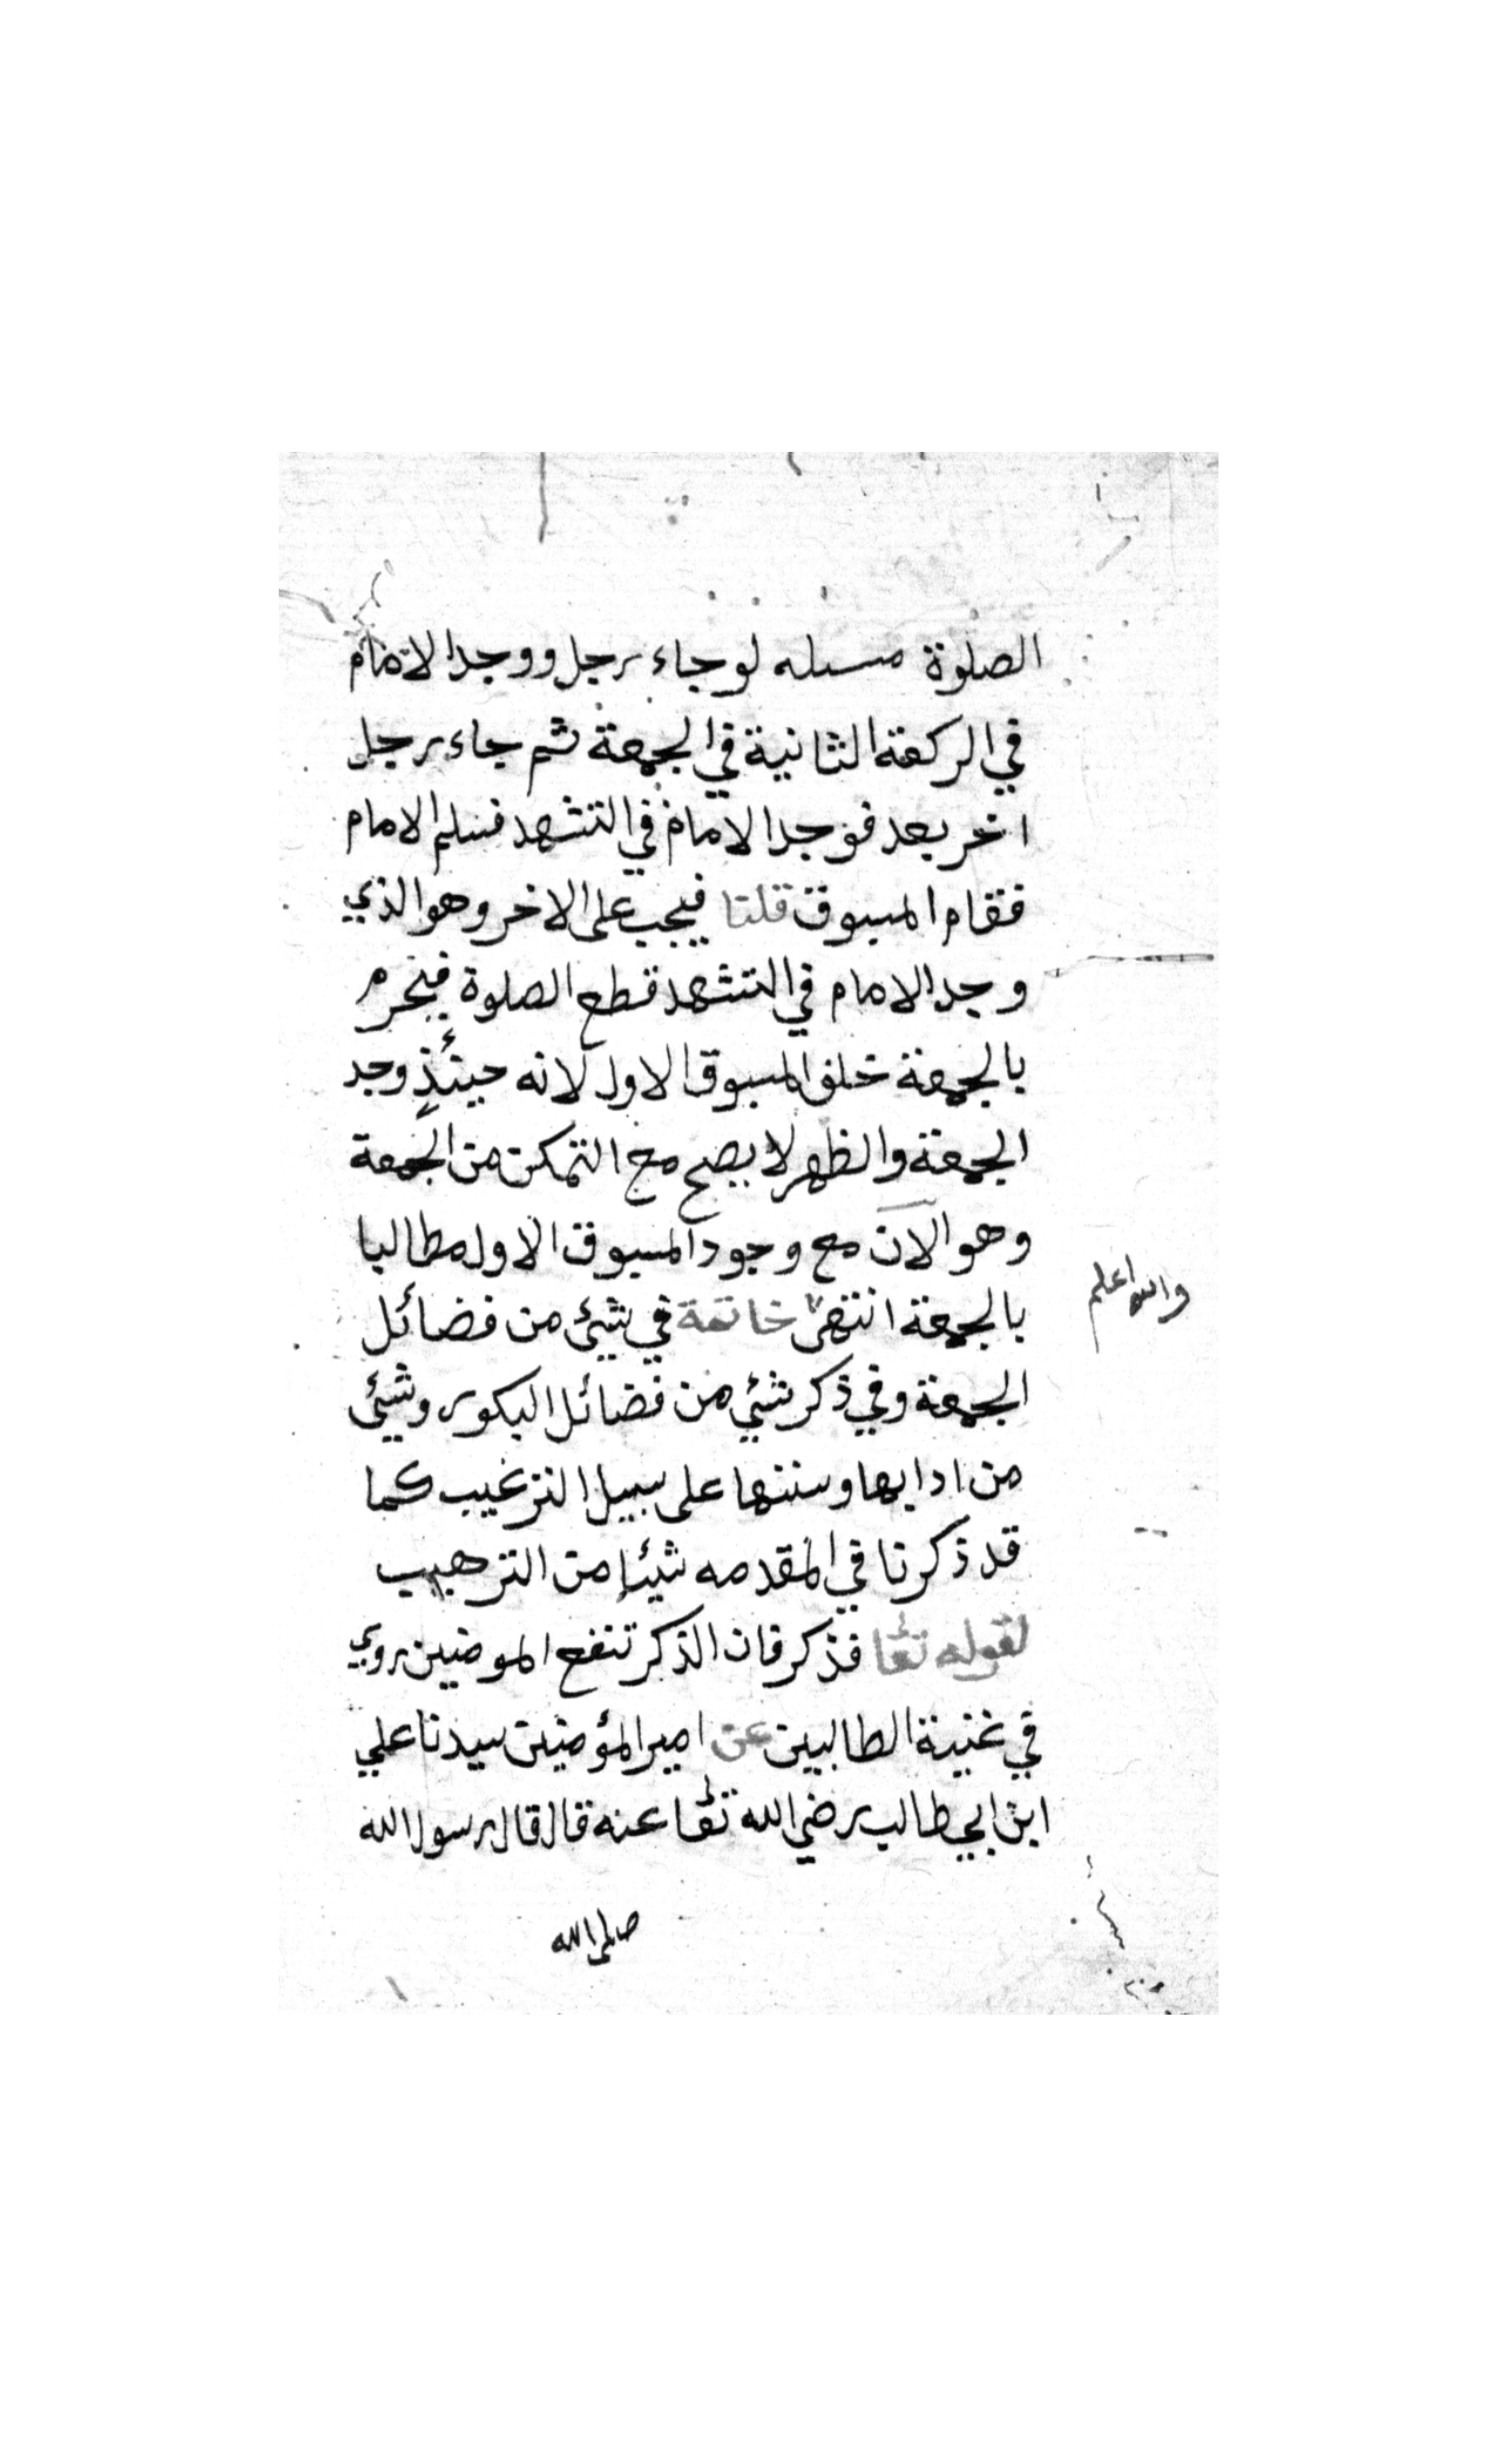 الصلوة مسله لو جاء رجل ووجد الامام
في الركعة الثانية في الجمعة ثم جاء رجل
اخر بعد فوجد الامام في التشهد فسلم الامام
فقام المسبوق قلنا فيجب على الاخر وهو الذي
وجد الامام في التشهد قطع الصلوة فيحرم
بالجمعة خلف المسبوق الاول لانه حينئذٍ وجد
الجمعة والظهر لا يصح مع التمكن من الجمعة
وهو الان مع وجود المسبوق الاول مطالبا
بالجمعة انتهى خاتمة في شيئ من فضائل
والله اعلم
الجمعة وفي ذكر شئي من فضائل البكور وشيئ
من ادابها وسننها على سبيل الترغيب كما
قد ذكرنا في المقدمه شيئا من الترهيب
لقوله تعا فذكر فان الذكر تنفع المومنين روي
في غنية الطالبين عن امير المؤمنين سيدنا علي
ابن ابي طالب رضي الله تعا عنه قال قال رسول الله
صلى الله